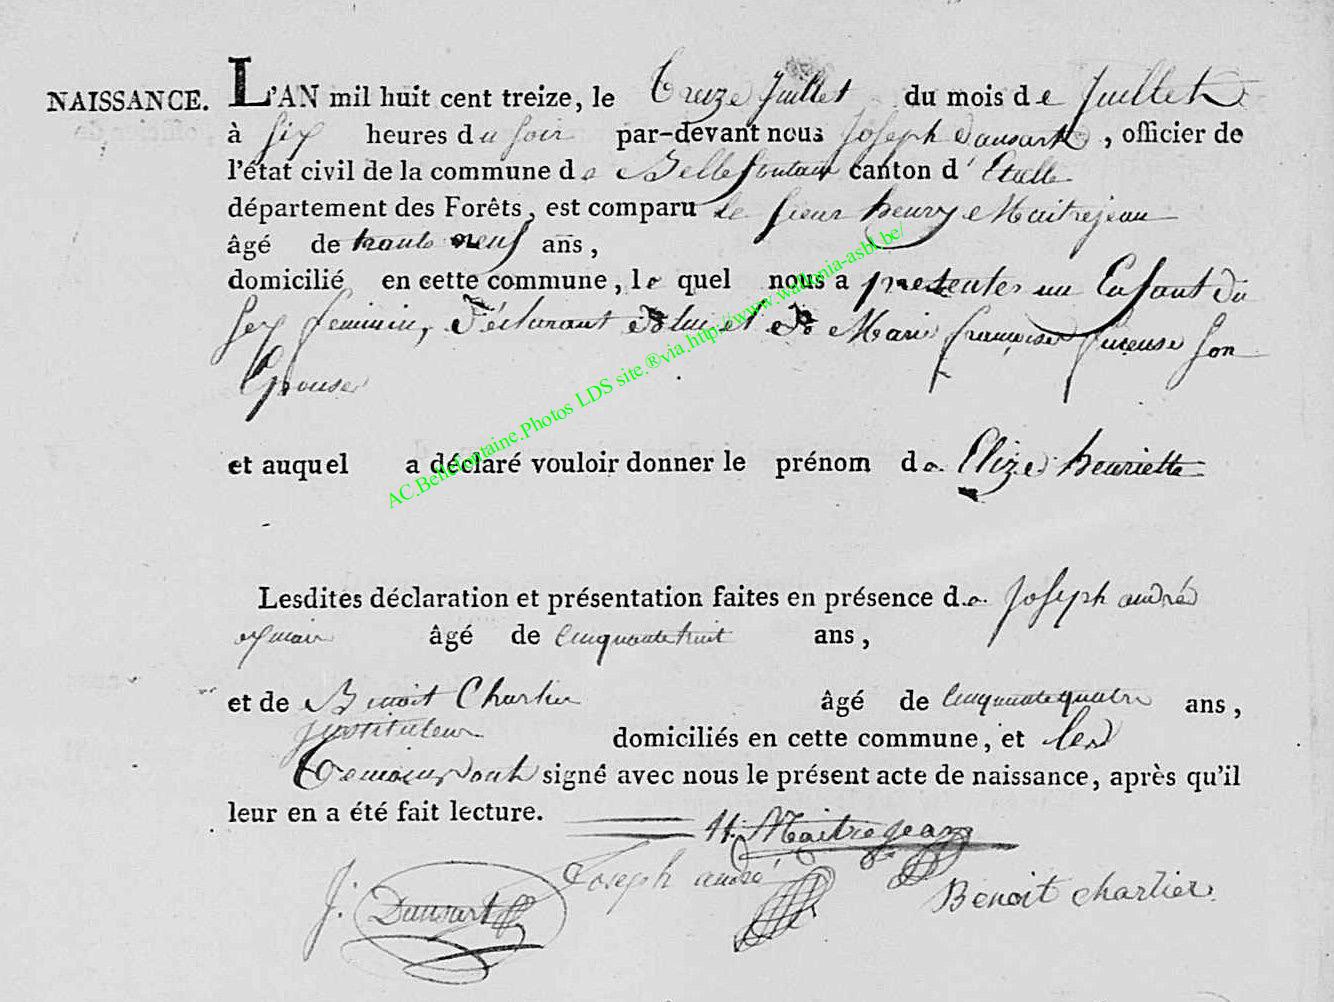 NAISSANCE. L'AN mil huit cent treize, le Treize Juillet du mois de Juillet
à six heures du soir par-devant nous Joseph Dausart, officier de
l'état civil de la commune de Bellefontaine canton d'Etalle
département des Forêts, est comparu le sieur henry Maitrejean
âgé de trente neuf ans,
domicilié en cette commune, le quel nous a presenter un Enfant du
sex feminin, déclarant de lui et de Marie françoise son
Epouse
et auquel a déclaré vouloir donner le prénom de Elize henriette
Lesdites déclaration et présentation faites en présence de Joseph andré
âgé de Cinquante huit ans,
et de Benoit Charlier âgé de Cinquante quatre ans,
instituteur domiciliés en cette commune, et les
Temoins ont signé avec nous le présent acte de naissance, après qu'il
leur en a été fait lecture.
H. Maitrejean
J. Dausart Joseph andré Benoit charlier
AC.Bellefontaine.Photos LDS site.®via.http://www.wallonia-asbl.be/